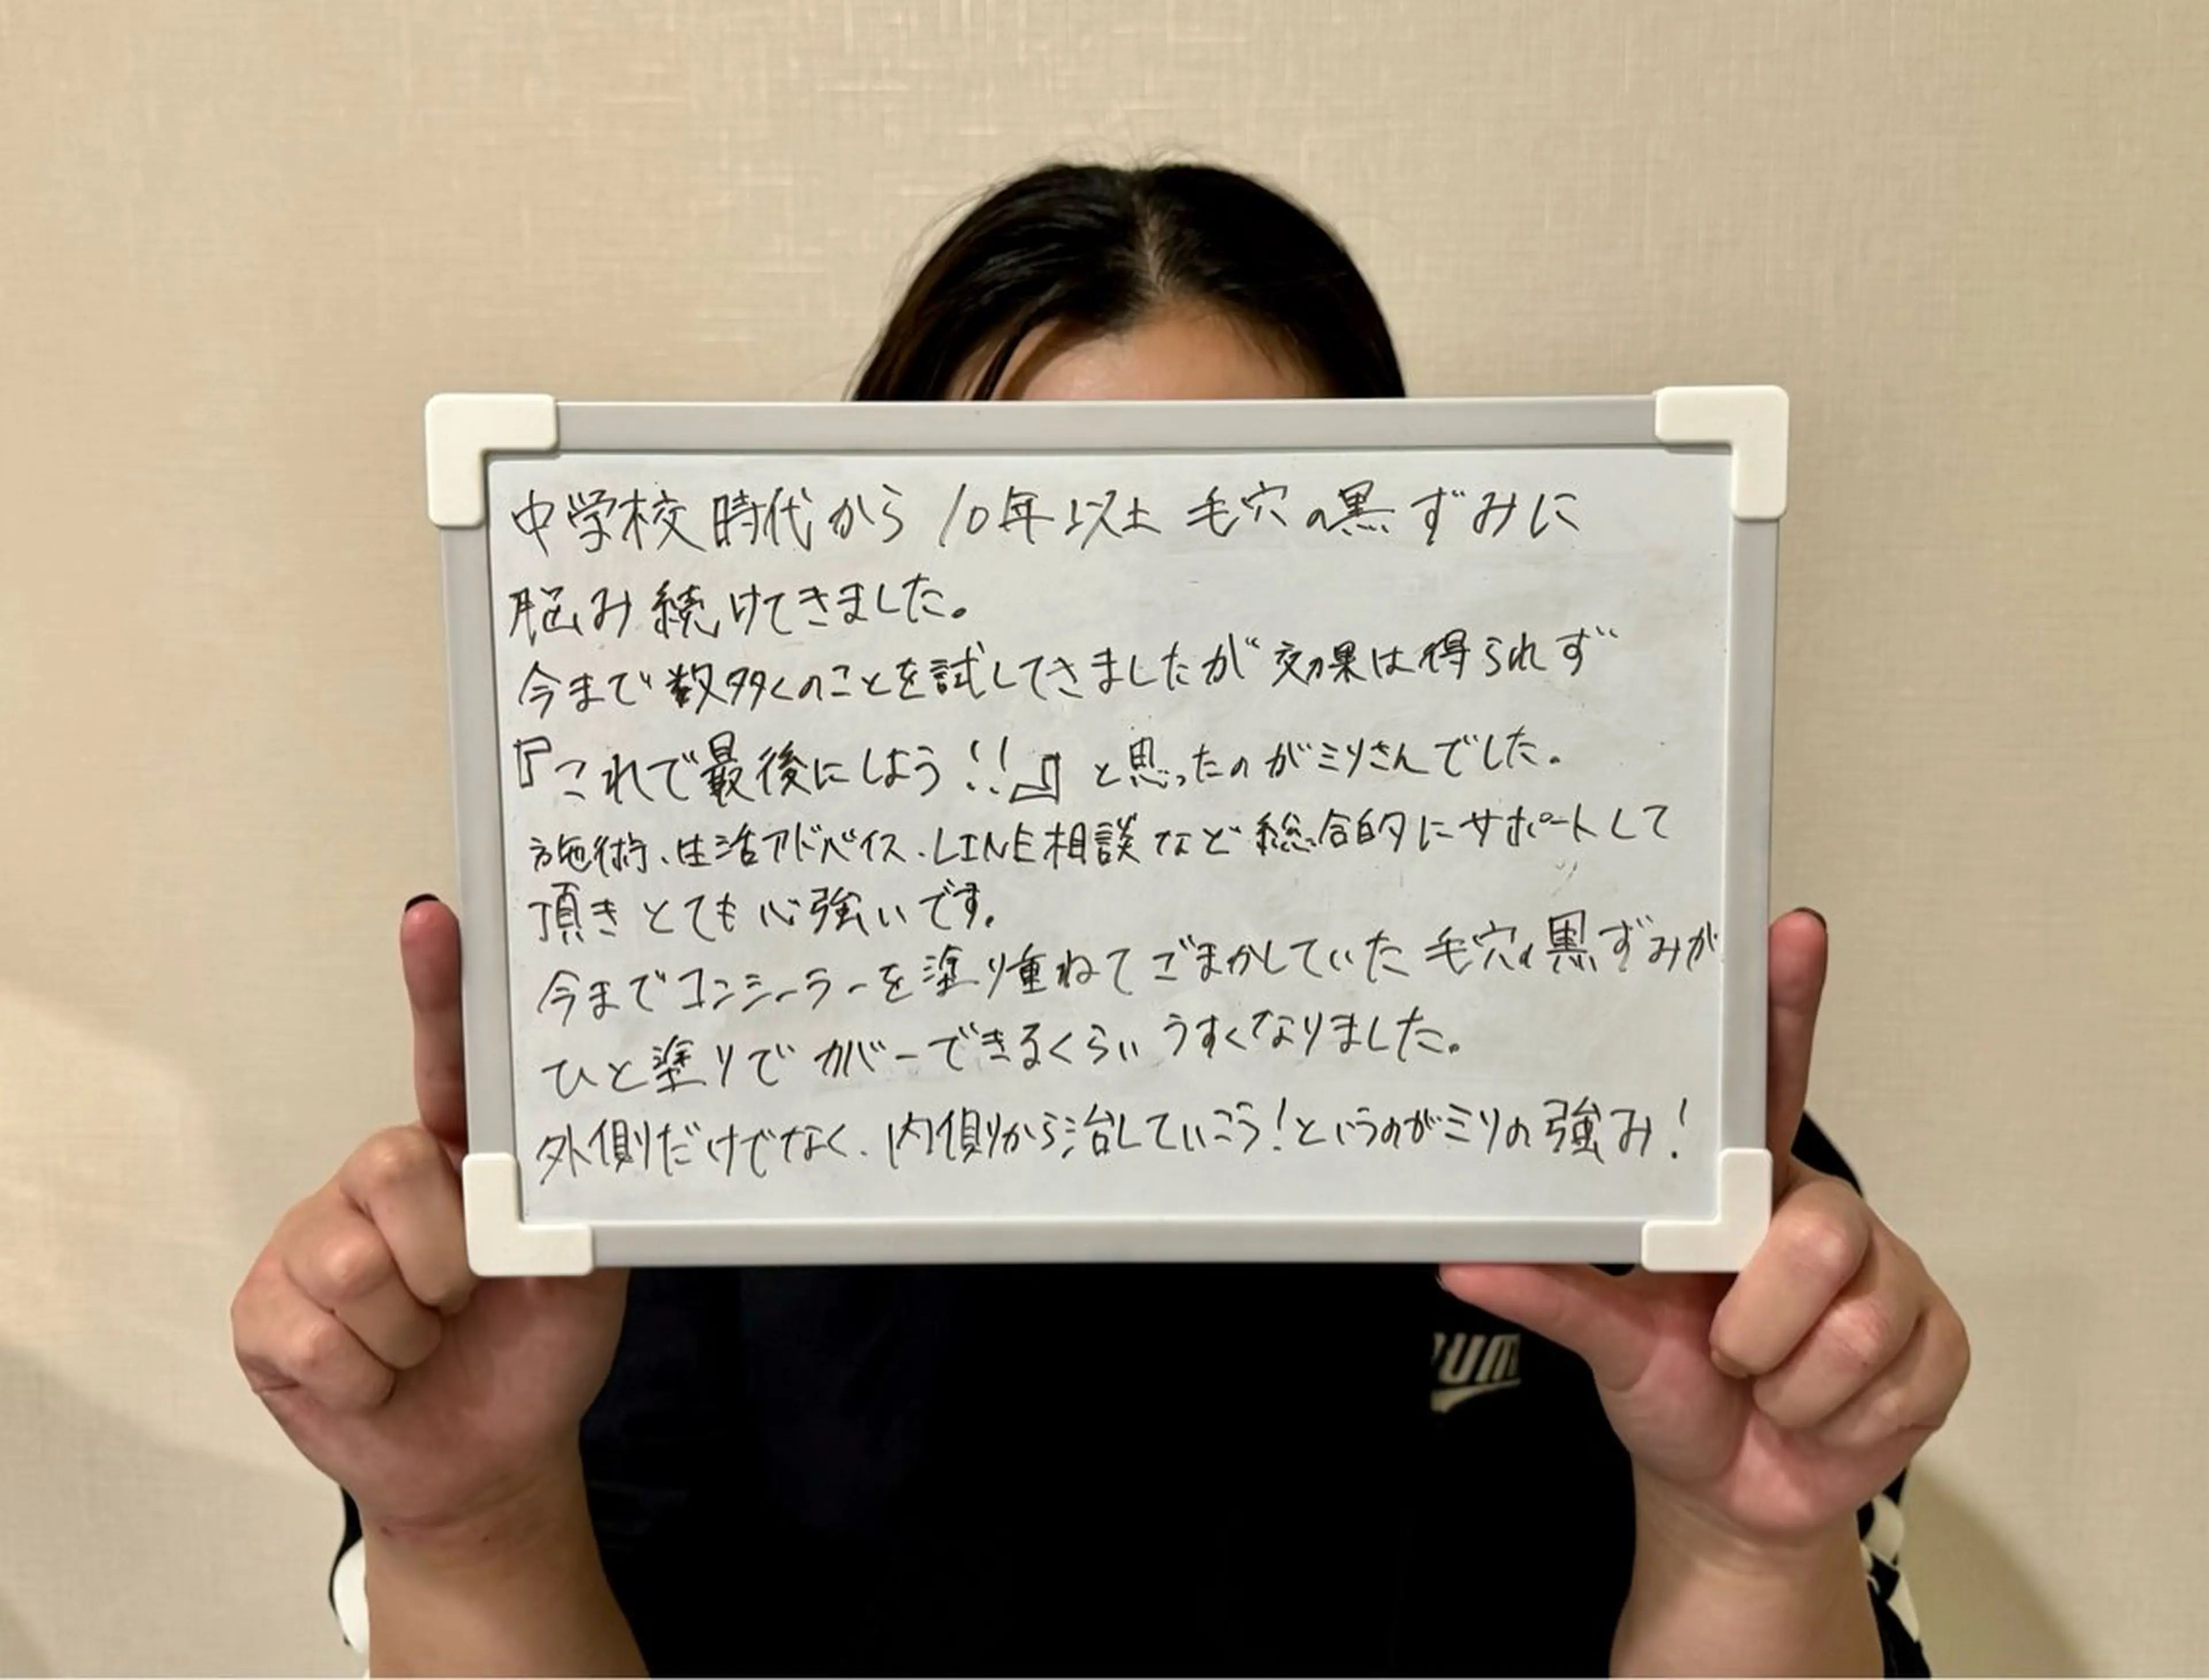 中学校時代から10年以上毛穴の黒ずみに
脳み続けてきました。
今まで数多くのことを試してきましたが効果は得られず
『これで最後にしよう!!』と思ったのがミリさんでした。
施術、生活アドバイス、LINE相談など総合的にサポートして
頂きとても心強いです。
今までコンシーラーを塗り重ねてごまかしていた毛穴の黒ずみが
ひと塗りでカバーできるくらいうすくなりました。
外側だけでなく、内側から治していこう!というのがミリの強み!